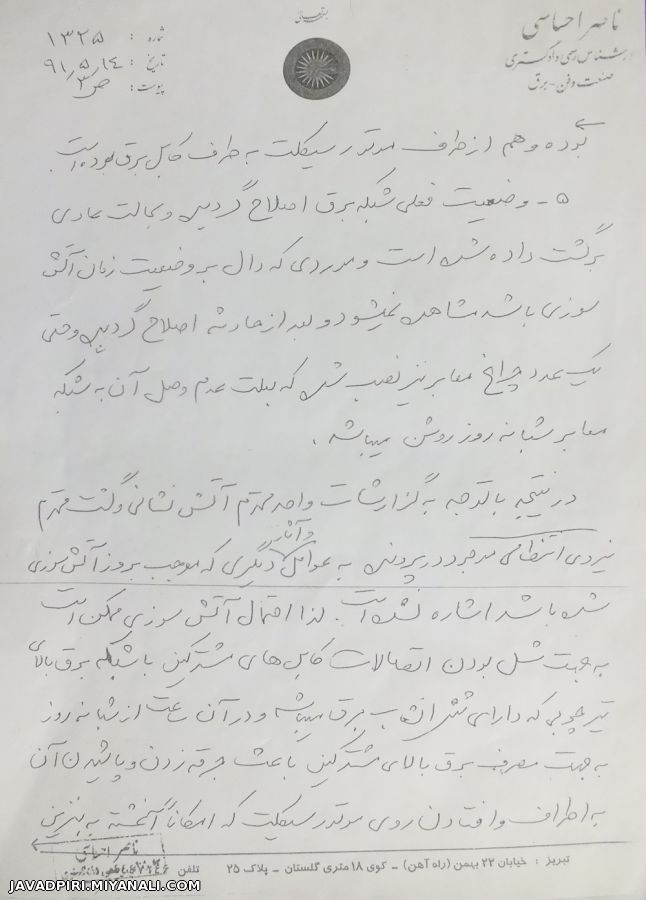 بسمه تعالی
ناصر احساسی
کارشناس رسمی دادگستری
صنعت و فن - برق
شماره : ۱۳۲۵
تاریخ : ۹۱/۵/۱۴
پیوست : ص/۳
بوده و هم از طرف موتور سیکلت به طرف کابل برق بوده است
۵ - وضعیت فعلی شبکه برق اصلاح گردیده و بحالت عادی
برگشت داده شده است و موردی که دال بر وضعیت زمان آتش
سوزی باشد مشاهده نمیشود و بعد از حادثه اصلاح گردیده وحتی
یک عدد چراغ معابر نیز نصب شده که بعلت عدم وصل آن به شبکه
معابر شبانه روز روشن میباشد .
در نتیجه با توجه به گزارشات واحد محترم آتش نشانی و گشت محترم
نیروی انتظامی موجود در پرونده به عوامل و آثار دیگری که موجب بروز آتش سوزی
شده باشد اشاره نشده است . لذا احتمال آتش سوزی ممکن است
به جهت شل بودن اتصالات کابل های مشترکین با شبکه برق بالای
تیر چوبی که دارای شش انشعاب برق میباشد و در آن ساعت از شبانه روز
به جهت مصرف برق بالای مشترکین باعث جرقه زدن و پاشیدن آن
به اطراف و افتادن روی موتور سیکلت که امکاناً آغشته به بنزین
ناصر احساسی
تبریز : خیابان ۲۲ بهمن (راه آهن) - کوی ۱۸ متری گلستان - پلاک ۲۵ تلفن
JAVADPIRI.MIYANALI.COM